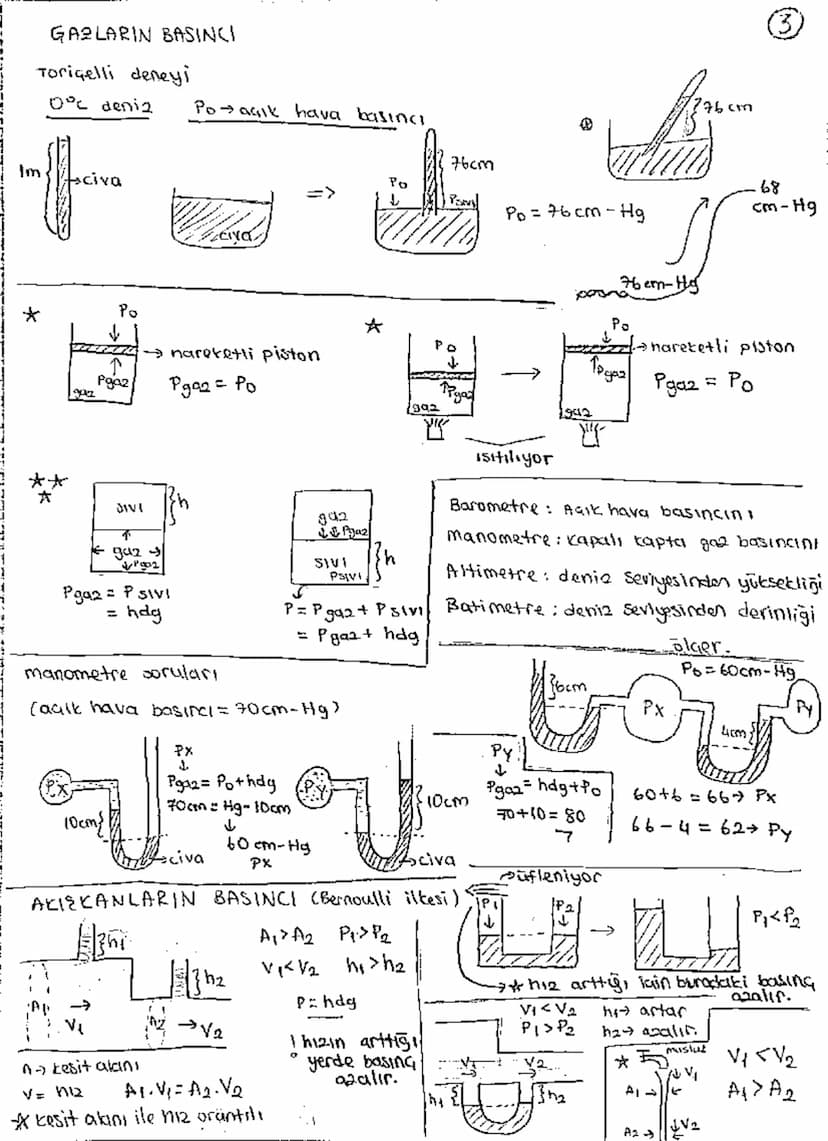 3
GAZLARIN BASINCI
Toriçelli deneyi
0°C deniz
P0 → açık hava basıncı
1m
civa
civa
=>
P0
76cm
Psıvı
76cm
P0 = 76cm-Hg
68
cm-Hg
76cm-Hg
P0
→ hareketli piston
Pgaz
gaz
Pgaz = P0
P0
Pgaz
gaz
P0
→ hareketli piston
Pgaz
gaz
Pgaz = P0
ısıtılıyor
sıvı
h
gaz
Pgaz
Pgaz = Psıvı
= hdg
gaz
Pgaz
sıvı
Psıvı
h
P = Pgaz + Psıvı
= Pgaz + hdg
Barometre : Açık hava basıncını
Manometre : Kapalı kapta gaz basıncını
Altimetre : deniz seviyesinden yüksekliği
Batimetre : deniz seviyesinden derinliği
ölçer.
manometre soruları
(açık hava basıncı = 70cm-Hg)
PX
10cm
civa
PX
↓
Pgaz = P0 + hdg
70cm = Hg - 10cm
↓
60 cm-Hg
PX
Py
10cm
civa
Py
↓
Pgaz = hdg + P0
70+10 = 80
P0 = 60cm-Hg
6cm
PX
4cm
Py
60+6 = 66 → PX
66 - 4 = 62 → Py
AKIŞKANLARIN BASINCI (Bernoulli ilkesi)
h1
h2
A1
V1
A2
V2
A1 > A2 P1 > P2
V1 < V2 h1 > h2
P = hdg
! hızın arttığı
yerde basınç
azalır.
A → kesit alanı
V = hız A1.V1 = A2.V2
* kesit alanı ile hız orantılı
→ üfleniyor
P1
P2
P1 < P2
* hız arttığı için buradaki basınç
azalır.
V1 < V2 h1 → artar
P1 > P2 h2 → azalır.
V1
V2
h1
h2
musluk
V1
A1
A2
V2
V1 < V2
A1 > A2